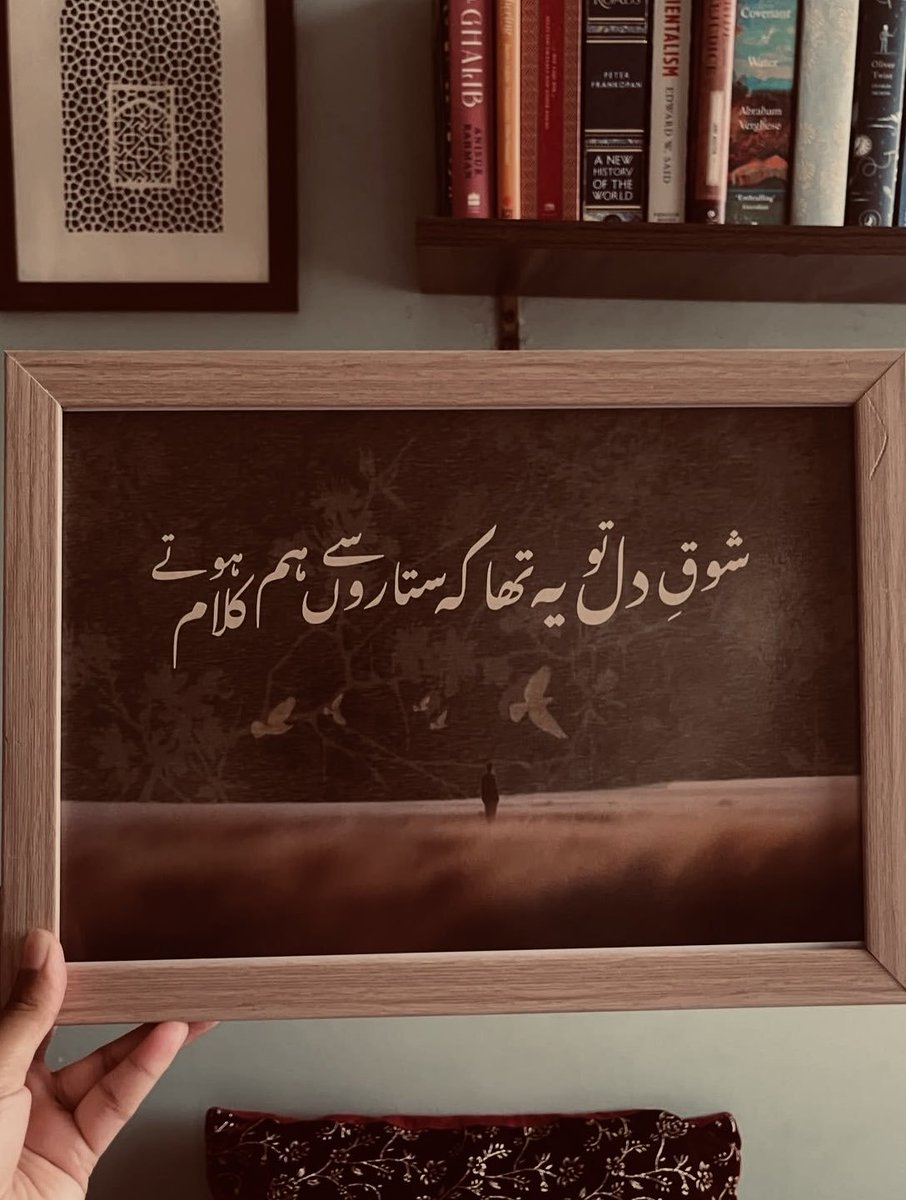 GHALIB
ANISUR
RAHMAN
PETER
FRANKOPAN
A NEW
HISTORY
OF THE
WORLD
EDWARD W. SAID
Covenant
Water
Abraham
Verghese
Oliver
Twist
شوقِ دل تو یہ تھا کہ ستاروں سے ہم کلام ہوتے